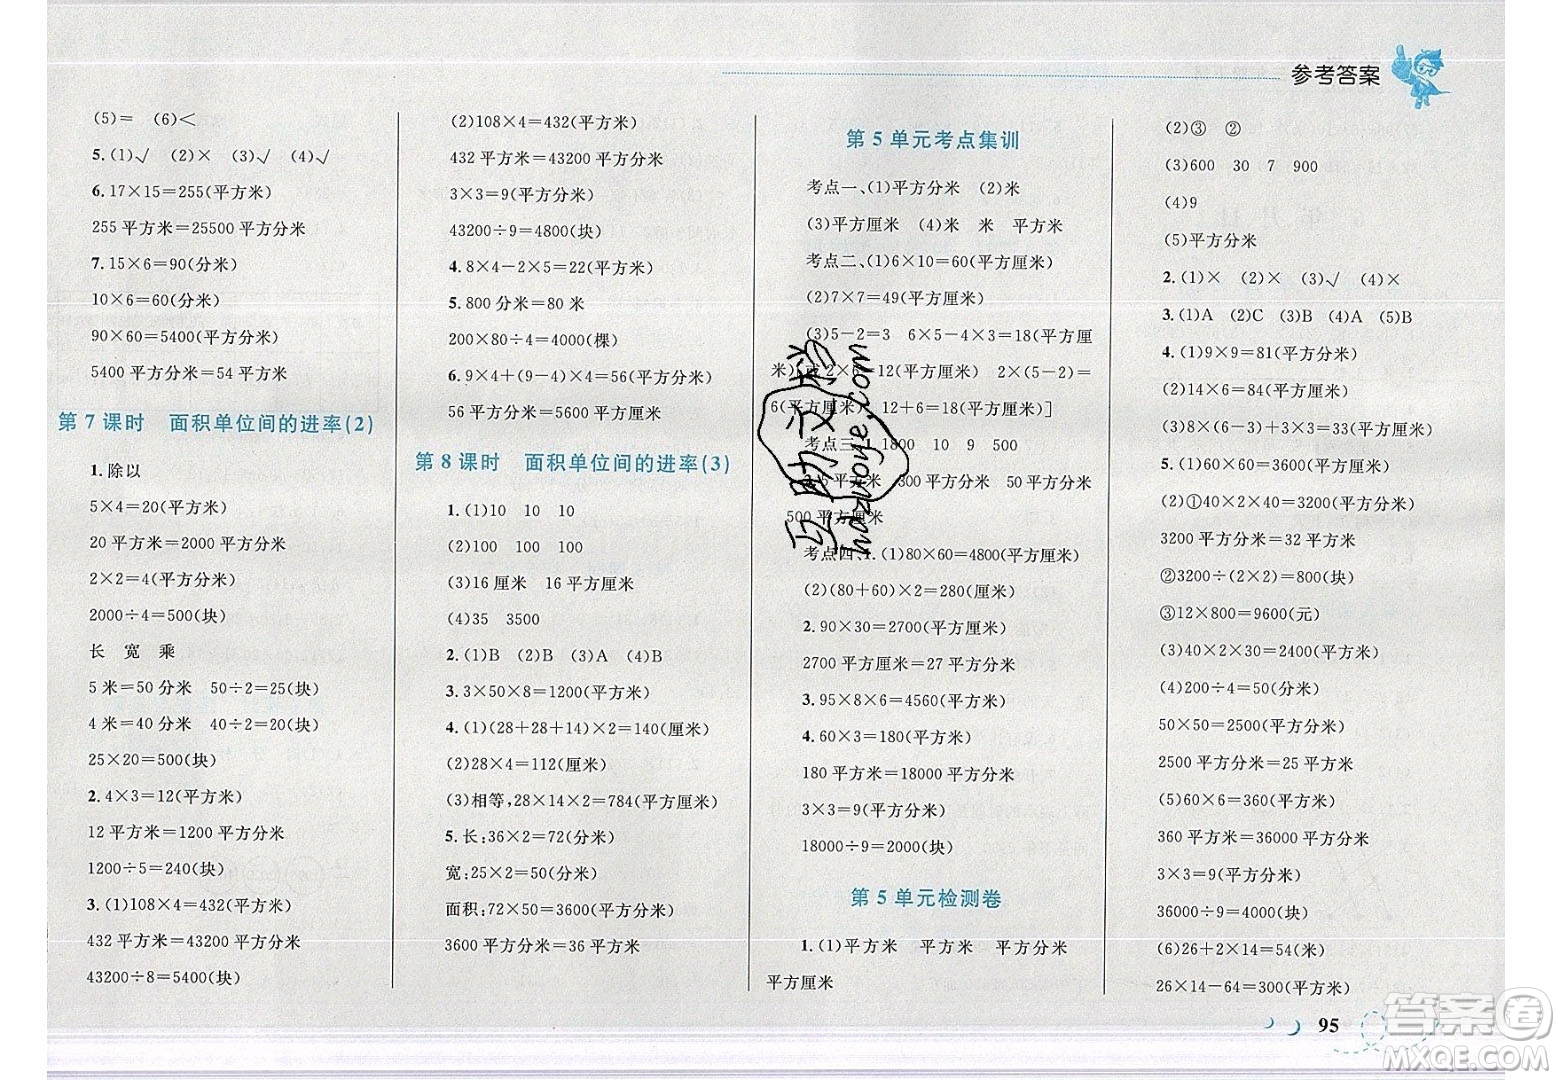 参考答案
(5)= (6)<
5.(1)√ (2)× (3)√ (4)√
6.17×15=255(平方米)
255 平方米=25500 平方分米
7.15×6=90(分米)
10×6=60(分米)
90×60=5400(平方分米)
5400 平方分米=54 平方米
第 7 课时 面积单位间的进率(2)
1.除以
5×4=20(平方米)
20 平方米=2000 平方分米
2×2=4(平方分米)
2000÷4=500(块)
长 宽 乘
5 米=50 分米 50÷2=25(块)
4 米=40 分米 40÷2=20(块)
25×20=500(块)
2.4×3=12(平方米)
12 平方米=1200 平方分米
1200÷5=240(块)
3.(1)108×4=432(平方米)
432 平方米=43200 平方分米
43200÷8=5400(块)
(2)108×4=432(平方米)
432 平方米=43200 平方分米
3×3=9(平方分米)
43200÷9=4800(块)
4.8×4-2×5=22(平方米)
5.800 分米=80 米
200×80÷4=4000(棵)
6.9×4+(9-4)×4=56(平方米)
56 平方米=5600 平方分米
第 8 课时 面积单位间的进率(3)
1.(1)10 10 10
(2)100 100 100
(3)16 厘米 16 平方厘米
(4)35 3500
2.(1)B (2)B (3)A (4)B
3.3×50×8=1200(平方米)
4.(1)(28+28+14)×2=140(厘米)
(2)28×4=112(厘米)
(3)相等,28×14×2=784(平方厘米)
5.长:36×2=72(分米)
宽:25×2=50(分米)
面积:72×50=3600(平方分米)
3600 平方分米=36 平方米
第 5 单元考点集训
考点一、(1)平方分米 (2)米
(3)平方厘米 (4)米 米 平方米
考点二、(1)6×10=60(平方厘米)
(2)7×7=49(平方厘米)
(3)5-2=3 6×5-4×3=18(平方厘
米)[或 2×6=12(平方厘米) 2×(5-2)=
6(平方厘米) 12+6=18(平方厘米)]
考点三、1.1800 10 9 500
5 平方米 300 平方分米 50 平方分米
500 平方厘米
考点四、1.(1)80×60=4800(平方厘米)
(2)(80+60)×2=280(厘米)
2.90×30=2700(平方厘米)
2700 平方厘米=27 平方分米
3.95×8×6=4560(平方米)
4.60×3=180(平方米)
180 平方米=18000 平方分米
3×3=9(平方分米)
18000÷9=2000(块)
第 5 单元检测卷
1.(1)平方米 平方米 平方分米
平方厘米
(2)③ ②
(3)600 30 7 900
(4)9
(5)平方分米
2.(1)× (2)× (3)√ (4)×
3.(1)A (2)C (3)B (4)A (5)B
4.(1)9×9=81(平方厘米)
(2)14×6=84(平方分米)
(3)8×(6-3)+3×3=33(平方米)
5.(1)60×60=3600(平方米)
(2)①40×2×40=3200(平方分米)
3200 平方分米=32 平方米
②3200÷(2×2)=800(块)
③12×800=9600(元)
(3)40×2×30=2400(平方米)
(4)200÷4=50(分米)
50×50=2500(平方分米)
2500 平方分米=25 平方米
(5)60×6=360(平方米)
360 平方米=36000 平方分米
3×3=9(平方分米)
36000÷9=4000(块)
(6)26+2×14=54(米)
26×14-64=300(平方米)
95
互助文档
hdzuoye.com
答案卷
MXQE.COM